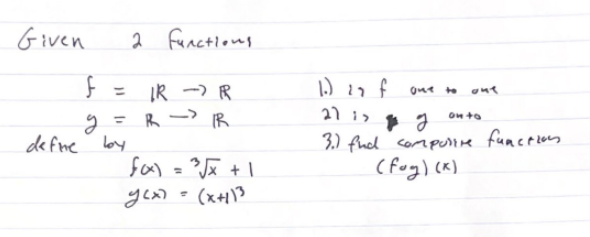 Given 2 functions
f = ℝ → ℝ
g = ℝ → ℝ
define by
f(x) = ³√x + 1
g(x) = (x+1)³
1.) is f one to one
2) is g onto
3.) find composite function
(f∘g)(x)